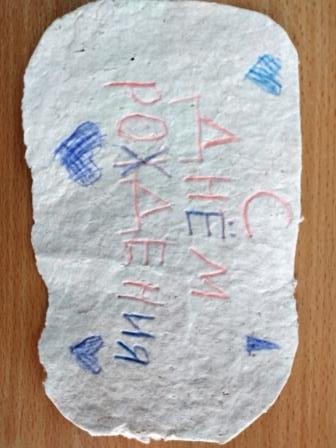 С
ДНЁМ
РОЖДЕНИЯ